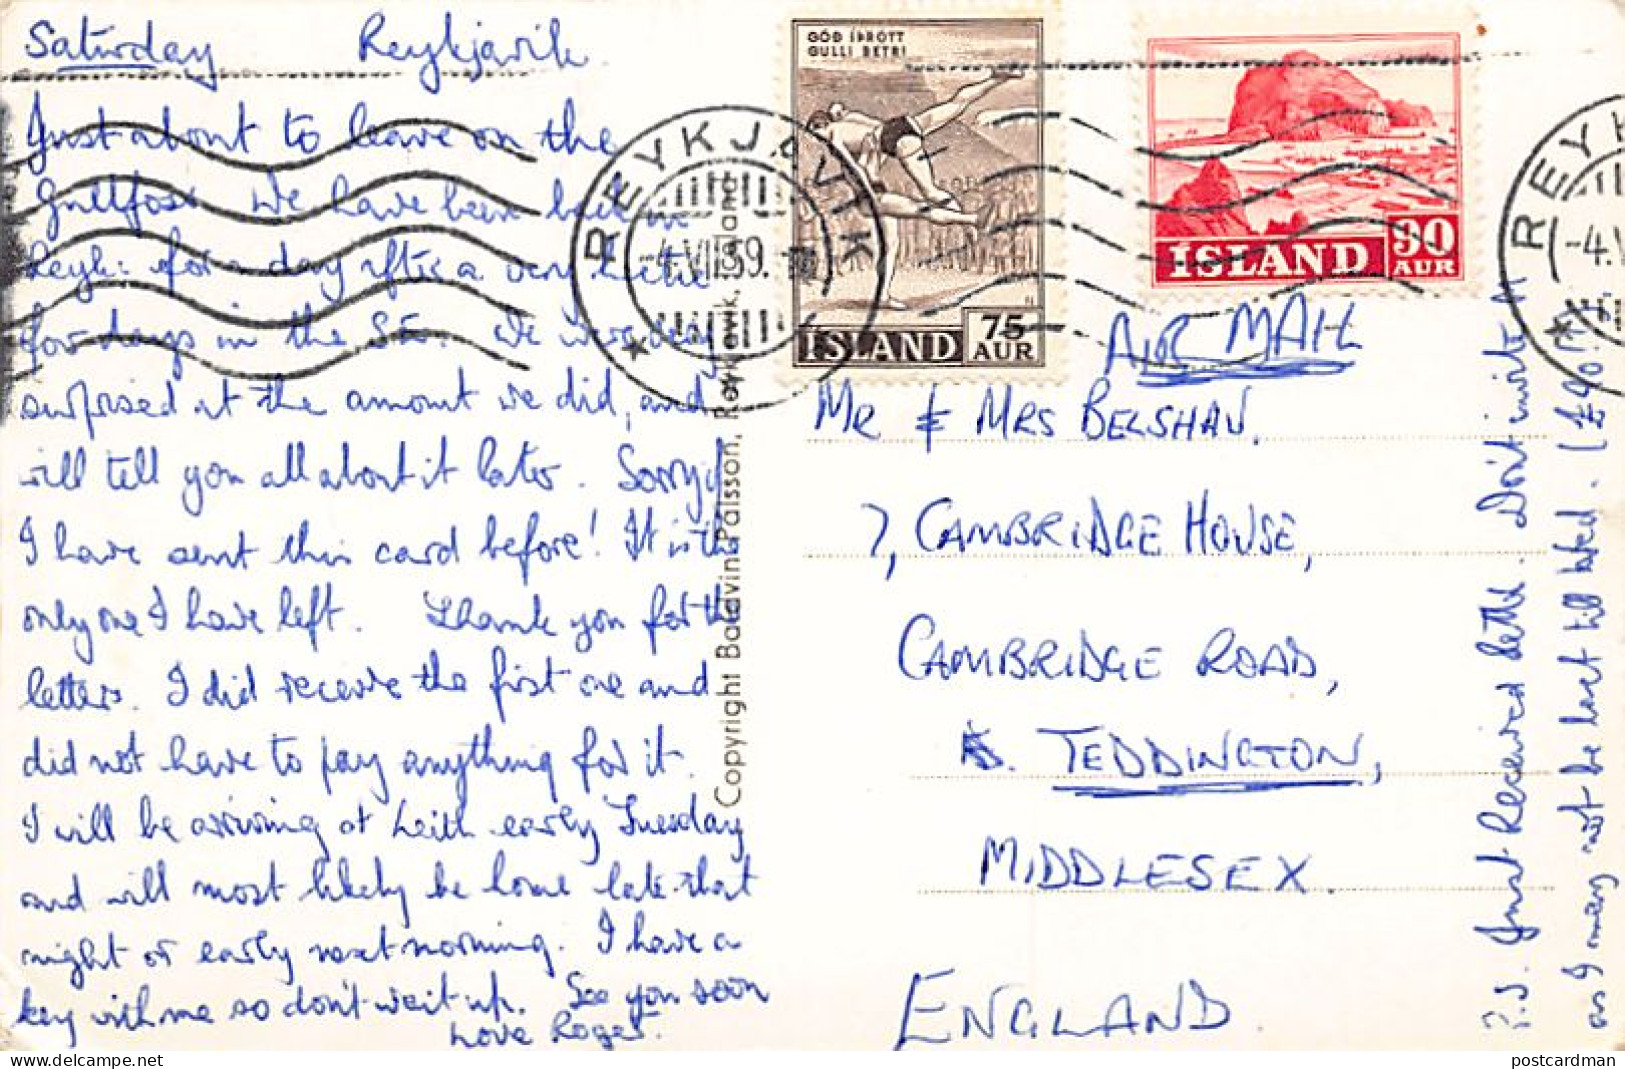 Saturday Reykjavik
Just about to leave on the
Gullfoss. We have been back in
Reyk: for a day after a very hectic
few days in the S
We were very
surprised at the amount we did, and
will tell you all about it later. Sorry if
I have sent this card before! It is the
only one I have left. Thank you for the
letters. I did receive the first one and
did not have to pay anything for it.
I will be arriving at Leith early Tuesday
and will most likely be home late that
night or early next morning. I have a
key with me so don't wait up. See you soon
Love Roger.
Copyright Baldvin Pálsson, Reykjavik, Iceland
GÓÐ ÍÞRÓTT
GULLI BETRI
ÍSLAND 75 AUR
ÍSLAND 90 AUR
REYKJAVIK
-4.VIII.59.
REYK
-4.V
AIR MAIL
MR & MRS BELSHAW.
7, CAMBRIDGE HOUSE,
CAMBRIDGE ROAD,
TEDDINGTON,
MIDDLESEX.
ENGLAND.
P.S. Just Received letter. Don't wait
as I may not be back till Wed.
postcardman